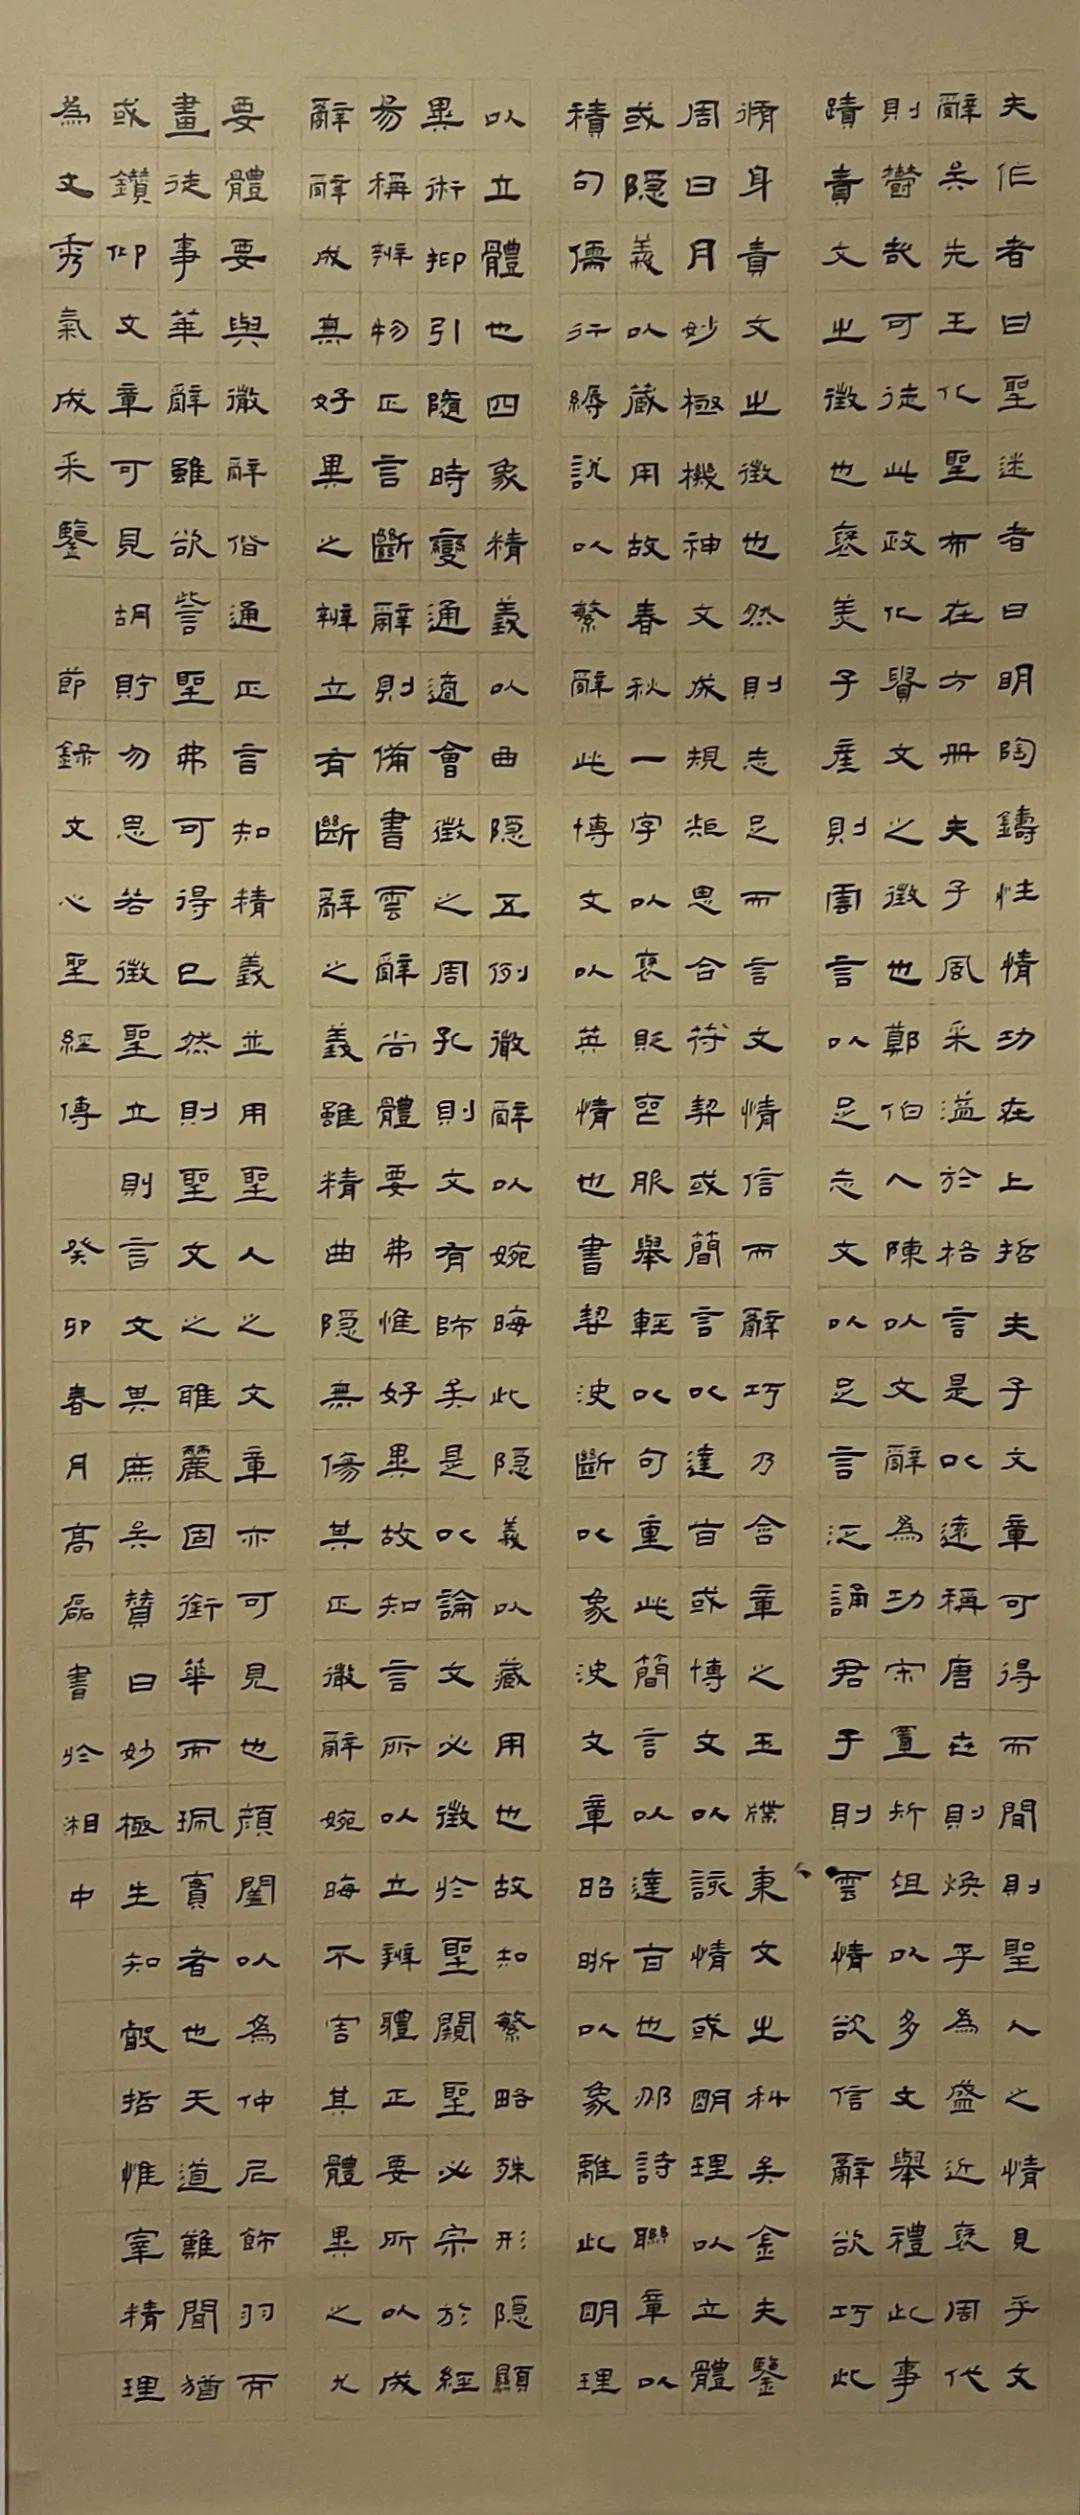 夫作者曰聖述者曰明陶鑄性情功在上哲夫子文章可得而聞則聖人之情見乎文
辭矣先王化聖布在方冊夫子風采溢於格言是以遠稱唐世則煥乎為盛近褒周代
則鬱哉可徒此政化貴文之徵也鄭伯入陳以文辭為功宋置折俎以多文舉禮此事
蹟貴文之徵也褒美子產則雲言以足志文以足言泛論君子則雲情欲信辭欲巧此
脩身貴文之徵也然則志足而言文情信而辭巧乃含章之玉牒秉文之科矣金夫鑒
周日月妙極機神文成規矩思合符契或簡言以達旨或博文以詠情或明理以立體
或隐義以藏用故春秋一字以褒貶喪服舉輕以句重此簡言以達旨也邠詩聯章以
積句儒行縟說以繁辭此博文以英情也書契決斷以象決文章昭晰以象離此明理
以立體也四象精義以曲隐五例徵辭以婉晦此隐義以藏用也故知繁略殊形隐顯
異術抑引隨時變通適會徵之周孔則文有師矣是以論文必徵於聖闚聖必宗於經
易稱辨物正言斷辭則備書雲辭尚體要弗惟好異故知言所以立辨體正要所以成
辭辭成無好異之辨立有斷辭之義雖精曲隐無傷其正微辭婉晦不害其體異之尤
要體要與微辭偕通正言知精義並用聖人之文章亦可見也顏闔以為仲尼飾羽而
畫徒事華辭雖欲訾聖弗可得已然則聖文之雅麗固銜華而珮實者也天道難聞猶
或鑽仰文章可見胡貯勿思若徵聖立則言文其庶矣贊曰妙極生知叡哲惟宰精理
為文秀氣成采鑒 節錄文心聖經傳 癸卯春月高磊書於湘中